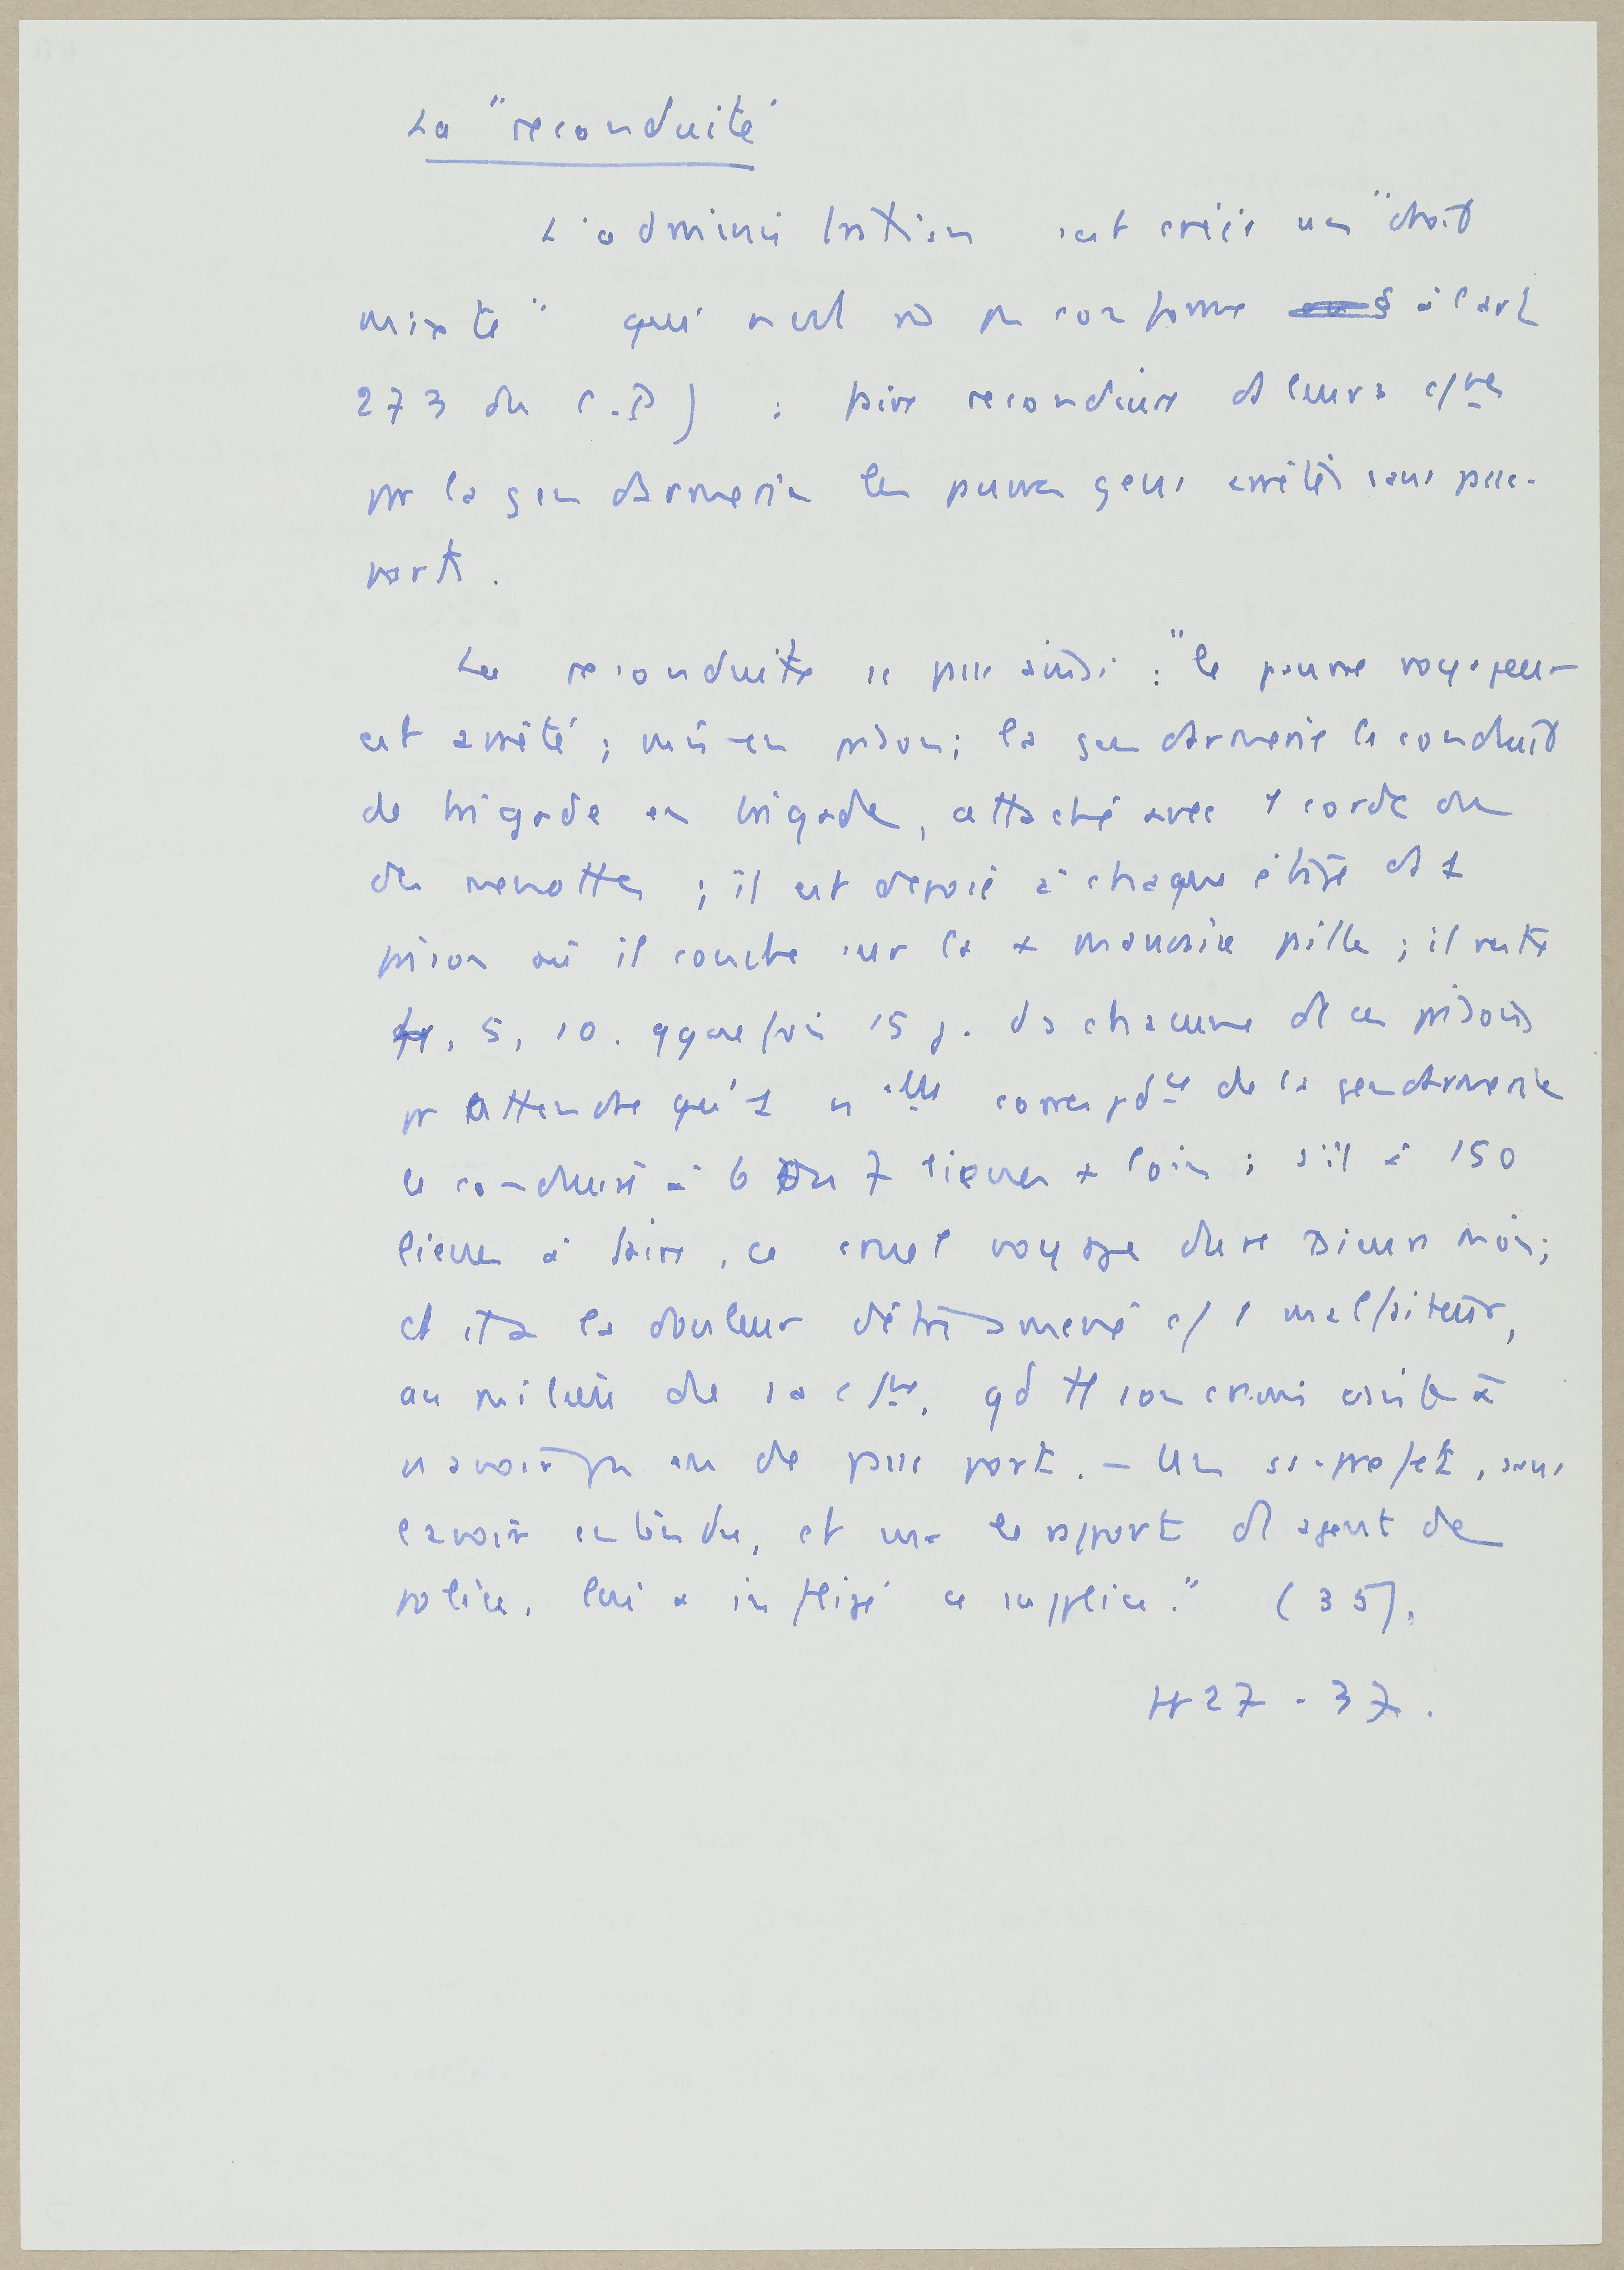 La "reconduite"
L'administration s'est créée un "droit
mixte" qui n'est pas conforme à l'art
273 du C.P) : faire reconduire ds leurs c/nes
pr la gendarmerie les pauvres gens arrêtés sans passe-
ports.
La reconduite se passe ainsi : "le pauvre voyageur
est arrêté ; mis en prison ; la gendarmerie le conduit
de brigade en brigade, attaché avec 1 corde ou
des menottes ; il est déposé à chaque étape ds 1
prison où il couche sur la + mauvaise paille ; il reste
4, 5, 10, qquefois 15 j. ds chacune de ces prisons
pr attendre qu'1 nlle correspdce de la gendarmerie
le conduise à 6 ou 7 lieues + loin ; s'il a 150
lieues à faire, ce cruel voyage dure plusieurs mois ;
et il a la douleur d'être amené c/ 1 malfaiteur,
au milieu de sa c/ne, qd tt son crime consiste à
n'avoir pas eu de passe port. – Un ss-préfet, sans
l'avoir entendu, et sur le rapport d'1 agent de
police, lui a infligé ce supplice." (35).
27 - 37.